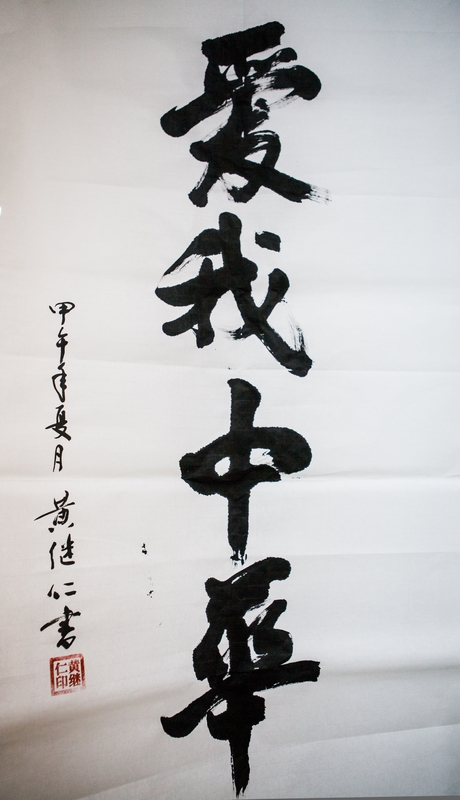 爱我中華
甲午年夏月 黄继仁书
黄继
仁印